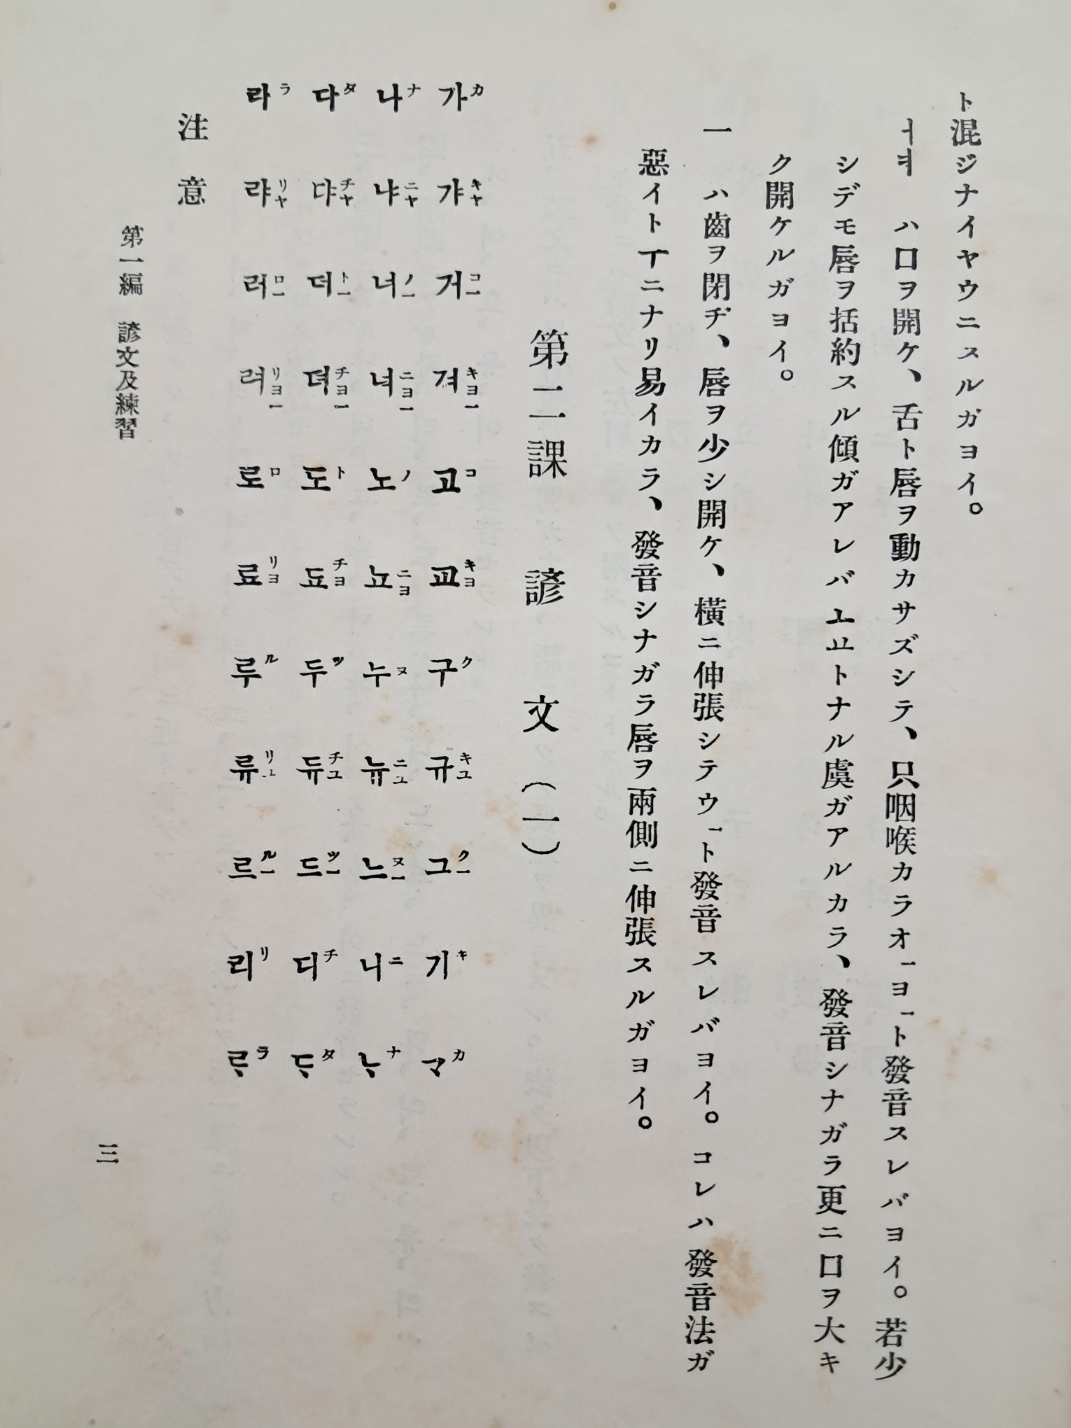 ト混ジナイヤウニスルガヨイ。
ㅓㅕ　ハ口ヲ開ケ、舌ト唇ヲ動カサズシテ、只咽喉カラオーヨート發音スレバヨイ。若少
シデモ唇ヲ括約スル傾ガアレバㅗㅛトナル虞ガアルカラ、發音シナガラ更ニ口ヲ大キ
ク開ケルガヨイ。
ㅡ　ハ齒ヲ閉ヂ、唇ヲ少シ開ケ、橫ニ伸張シテウート發音スレバヨイ。コレハ發音法ガ
惡イトㅜニナリ易イカラ、發音シナガラ唇ヲ兩側ニ伸張スルガヨイ。
第二課　諺　文（一）
가カ 갸キャ 거コー 겨キョー 고コ 교キョ 구ク 규キュ 그クー 기キ ᄀᆞカ
나ナ 냐ニャ 너ノー 녀ニョー 노ノ 뇨ニョ 누ヌ 뉴ニュ 느ヌー 니ニ ᄂᆞナ
다タ 댜チャ 더トー 뎌チョー 도ト 됴チョ 두ツ 듀チュ 드ツー 디チ ᄃᆞタ
라ラ 랴リャ 러ロー 려リョー 로ロ 료リョ 루ル 류リュ 르ルー 리リ ᄅᆞラ
注意
第一編　諺文及練習
三